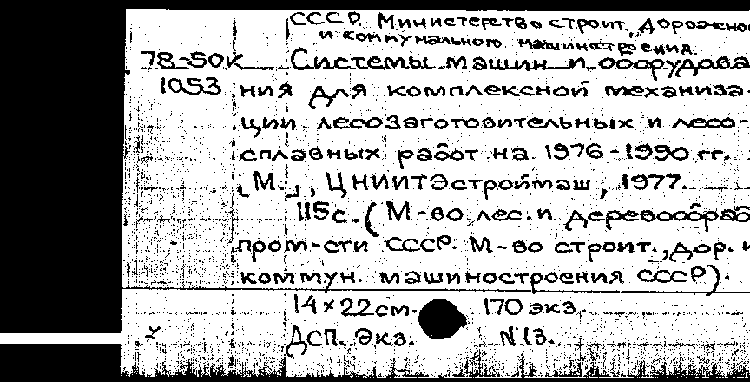 СССР. Министерство строит., дорожно
и коммунального машиностроения.
78-50к Системы машин и оборудова
1053 ния для комплексной механиза-
ции лесозаготовительных и лесо-
сплавных работ на 1976-1990 гг.
[М.], ЦНИИТЭстроймаш, 1977.
115с. (М-во лес. и деревообраб
пром-сти СССР. М-во строит., дор. и
коммун. машиностроения СССР).
14×22см. 170 экз.
ДСП. Экз. N 13.